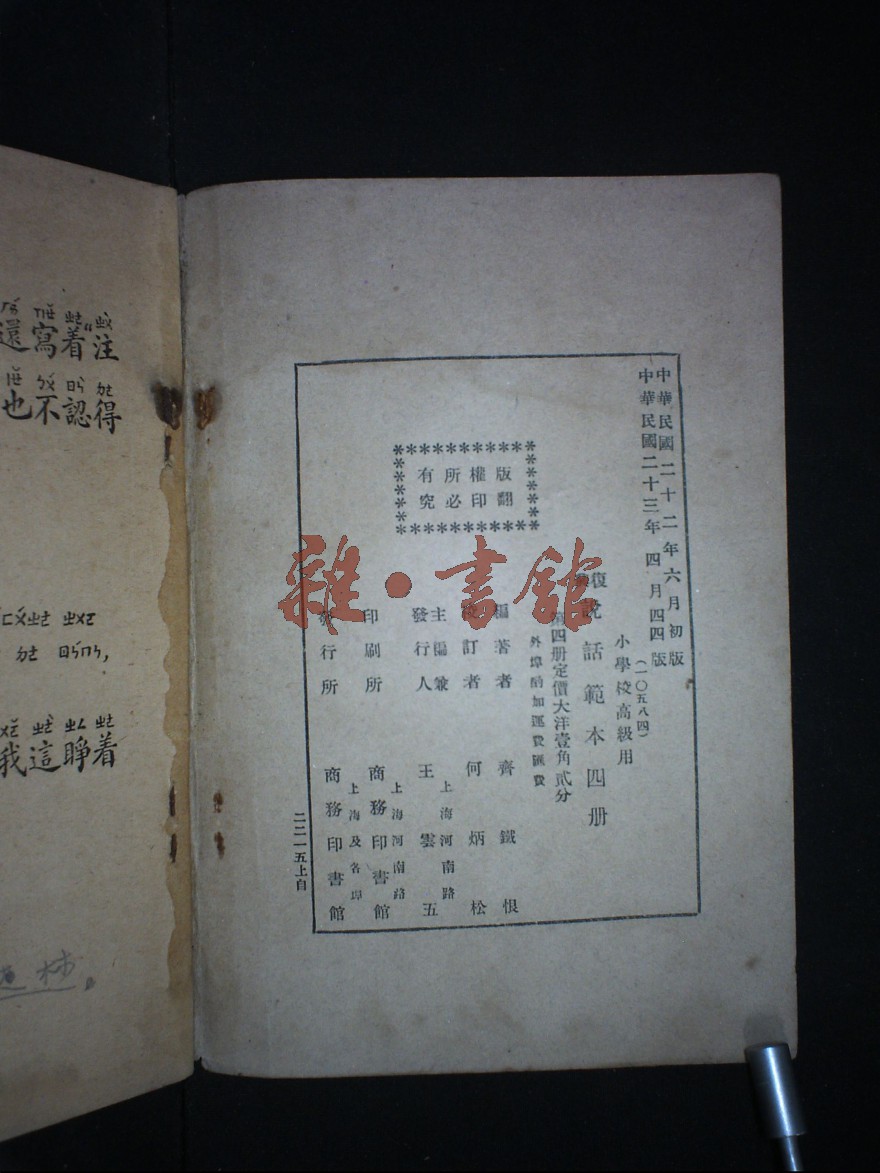 中華民國二十二年六月初版
中華民國二十三年四月四四版
(一〇五八四)
小學校高級用
復興說話範本四册
第四册定價大洋壹角貳分
外埠酌加運費匯費
編著者 齊鐵恨
校訂者 何炳松
主編兼發行人 王雲五
上海河南路
印刷所 商務印書館
上海河南路
發行所 商務印書館
上海及各埠
版權所有
翻印必究
二二一五上自
雜·書館
還寫着"注
也不認得
我這睜着